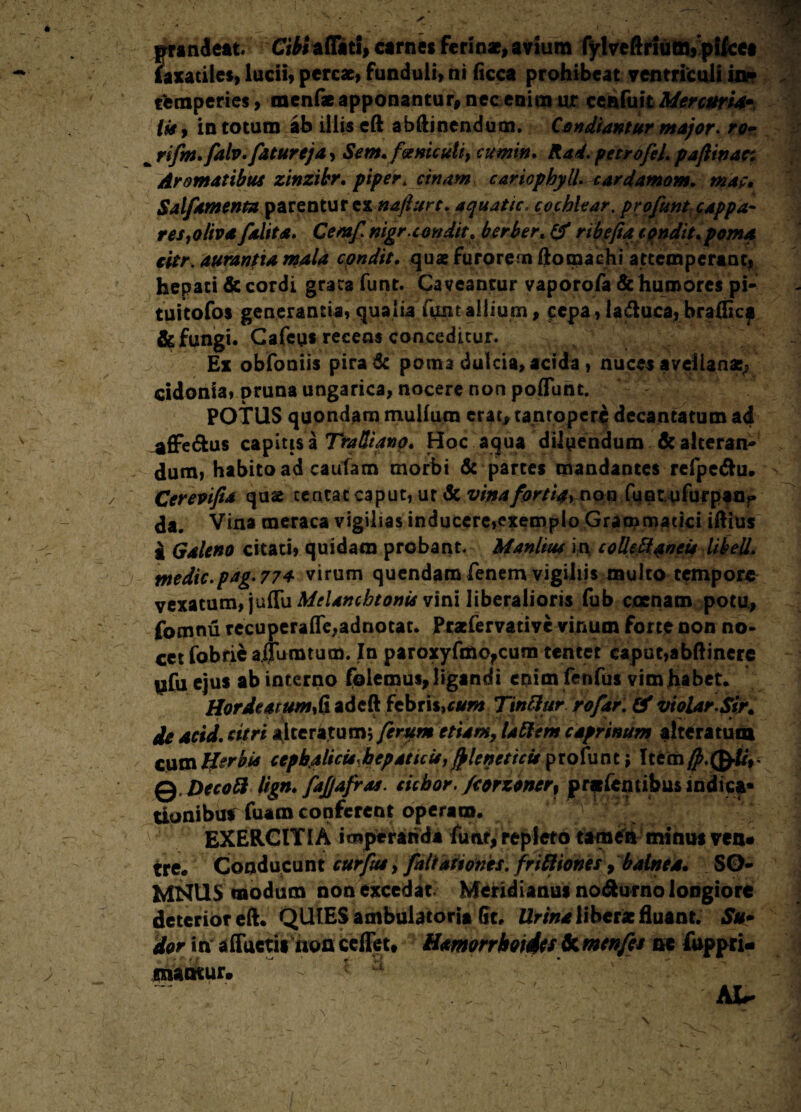 prandeat. Cibi aſſati, carnes ferinæ, avium ſylveſtrium, piſces
ſaxatiles, lucii, percæ, funduli, ni ſicca prohibeat ventriculi in-
temperies, menſæ apponantur, nec enim ut cenſuit Mercuria-
lis, in totum ab illis eſt abſtinendum. Condiantur major. ro-
riſm. ſalv. ſatureja, Sem. fœniculi, cumin. Rad. petroſel. paſtinac;
Aromatibus zinzibr. piper. cinam cariophyll. cardamom. mac.
Salſamenta parentur ex naſturt. aquatic. cochlear. proſunt cappa-
res, oliva ſalita. Ceraſ. nigr. condit. berber. & ribeſia condit. poma
citr. aurantia mala condit. quæ furorem ſtomachi attemperant,
hepati & cordi grata ſunt. Caveantur vaporoſa & humores pi-
tuitoſos generantia, qualia ſunt allium, cepa, lactuca, braſſica
& fungi. Caſeus recens conceditur.
Ex obſoniis pira & poma dulcia, acida, nuces avellanæ,
cidonia, pruna ungarica, nocere non poſſunt.
POTUS quondam mulſum erat, tantoperè decantatum ad
affectus capitis à Tralliano. Hoc aqua diluendum & alteran-
dum, habito ad cauſam morbi & partes mandantes reſpectu.
Cereviſia quæ tentat caput, ut & vina fortia, non ſunt uſurpan-
da. Vina meraca vigilias inducere, exemplo Grammatici iſtius
à Galeno citati, quidam probant. Manlius in collectaneis libell.
medic. pag. 774. virum quendam ſenem vigiliis multo tempore
vexatum, juſſu Melanchtonis vini liberalioris ſub cœnam potu,
ſomnū recuperaſſe, adnotat. Præſervativè vinum forte non no-
cet ſobriè aſſumtum. In paroxyſmo, cum tentet caput, abſtinere
uſu ejus ab interno ſolemus, ligandi enim ſenſus vim habet.
Hordeatum, ſi adeſt febris, cum Tinctur roſar. & violar. Sir.
de acid. citri alteratum; ſerum etiam, lactem caprinum alteratum
cum Herbis cephalicis, hepaticis, ſpleneticis proſunt; Item
Decoct lign. ſaſſafras. cichor. ſcorzoner, præſentibus indica-
tionibus ſuam conferent operam.
EXERCITIA imperanda ſunt, repleto tamen minus ven-
tre. Conducunt curſus, ſaltationes. frictiones, balnea. SO-
MNUS modum non excedat. Meridianus nocturno longiore
deterior eſt. QUIES ambulatoria ſit. Urina liberæ fluant. Su-
dor in aſſuetis non ceſſet. Hæmorrhoides & menſes ne ſuppri-
mantur.
AL-